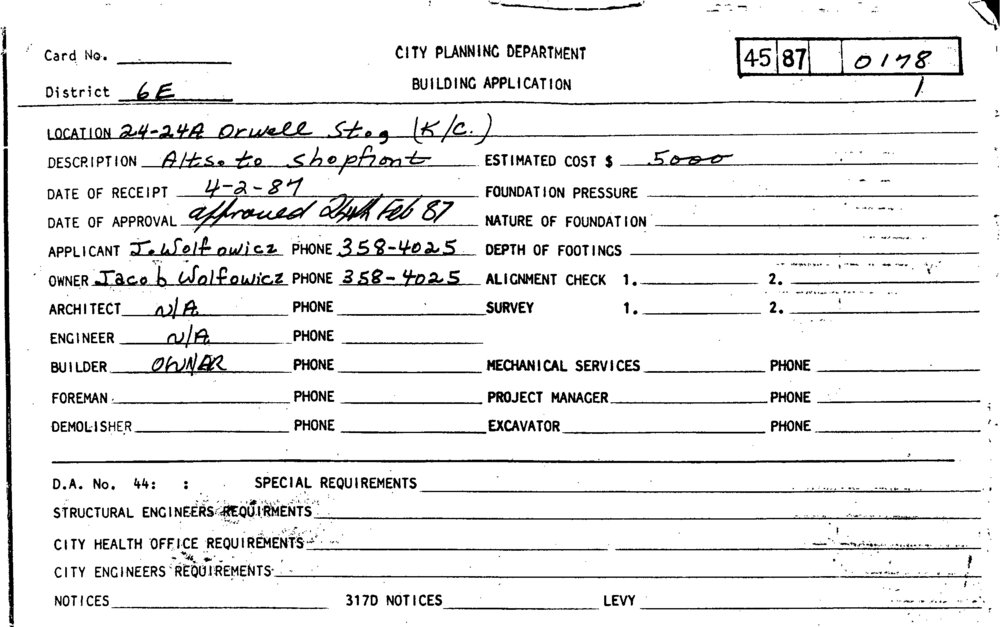 Card No. CITY PLANNING DEPARTMENT 45 87 0178
District 6E BUILDING APPLICATION 1
LOCATION 24-24A Orwell St., (K/C.)
DESCRIPTION Alts. to shopfront ESTIMATED COST $ 5000
DATE OF RECEIPT 4-2-87 FOUNDATION PRESSURE
DATE OF APPROVAL approved 24th Feb 87 NATURE OF FOUNDATION
APPLICANT J. Wolfowicz PHONE 358-4025 DEPTH OF FOOTINGS
OWNER Jacob Wolfowicz PHONE 358-4025 ALIGNMENT CHECK 1. 2.
ARCHITECT N/A PHONE SURVEY 1. 2.
ENGINEER N/A PHONE
BUILDER OWNER PHONE MECHANICAL SERVICES PHONE
FOREMAN PHONE PROJECT MANAGER PHONE
DEMOLISHER PHONE EXCAVATOR PHONE
D.A. No. 44: : SPECIAL REQUIREMENTS
STRUCTURAL ENGINEERS REQUIRMENTS
CITY HEALTH OFFICE REQUIREMENTS
CITY ENGINEERS REQUIREMENTS
NOTICES 317D NOTICES LEVY